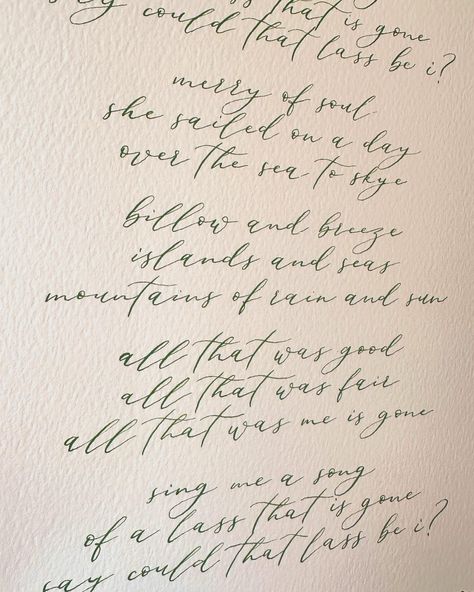 say could that lass be i?
merry of soul
she sailed on a day
over the sea to skye
billow and breeze
islands and seas
mountains of rain and sun
all that was good
all that was fair
all that was me is gone
sing me a song
of a lass that is gone
say could that lass be i?